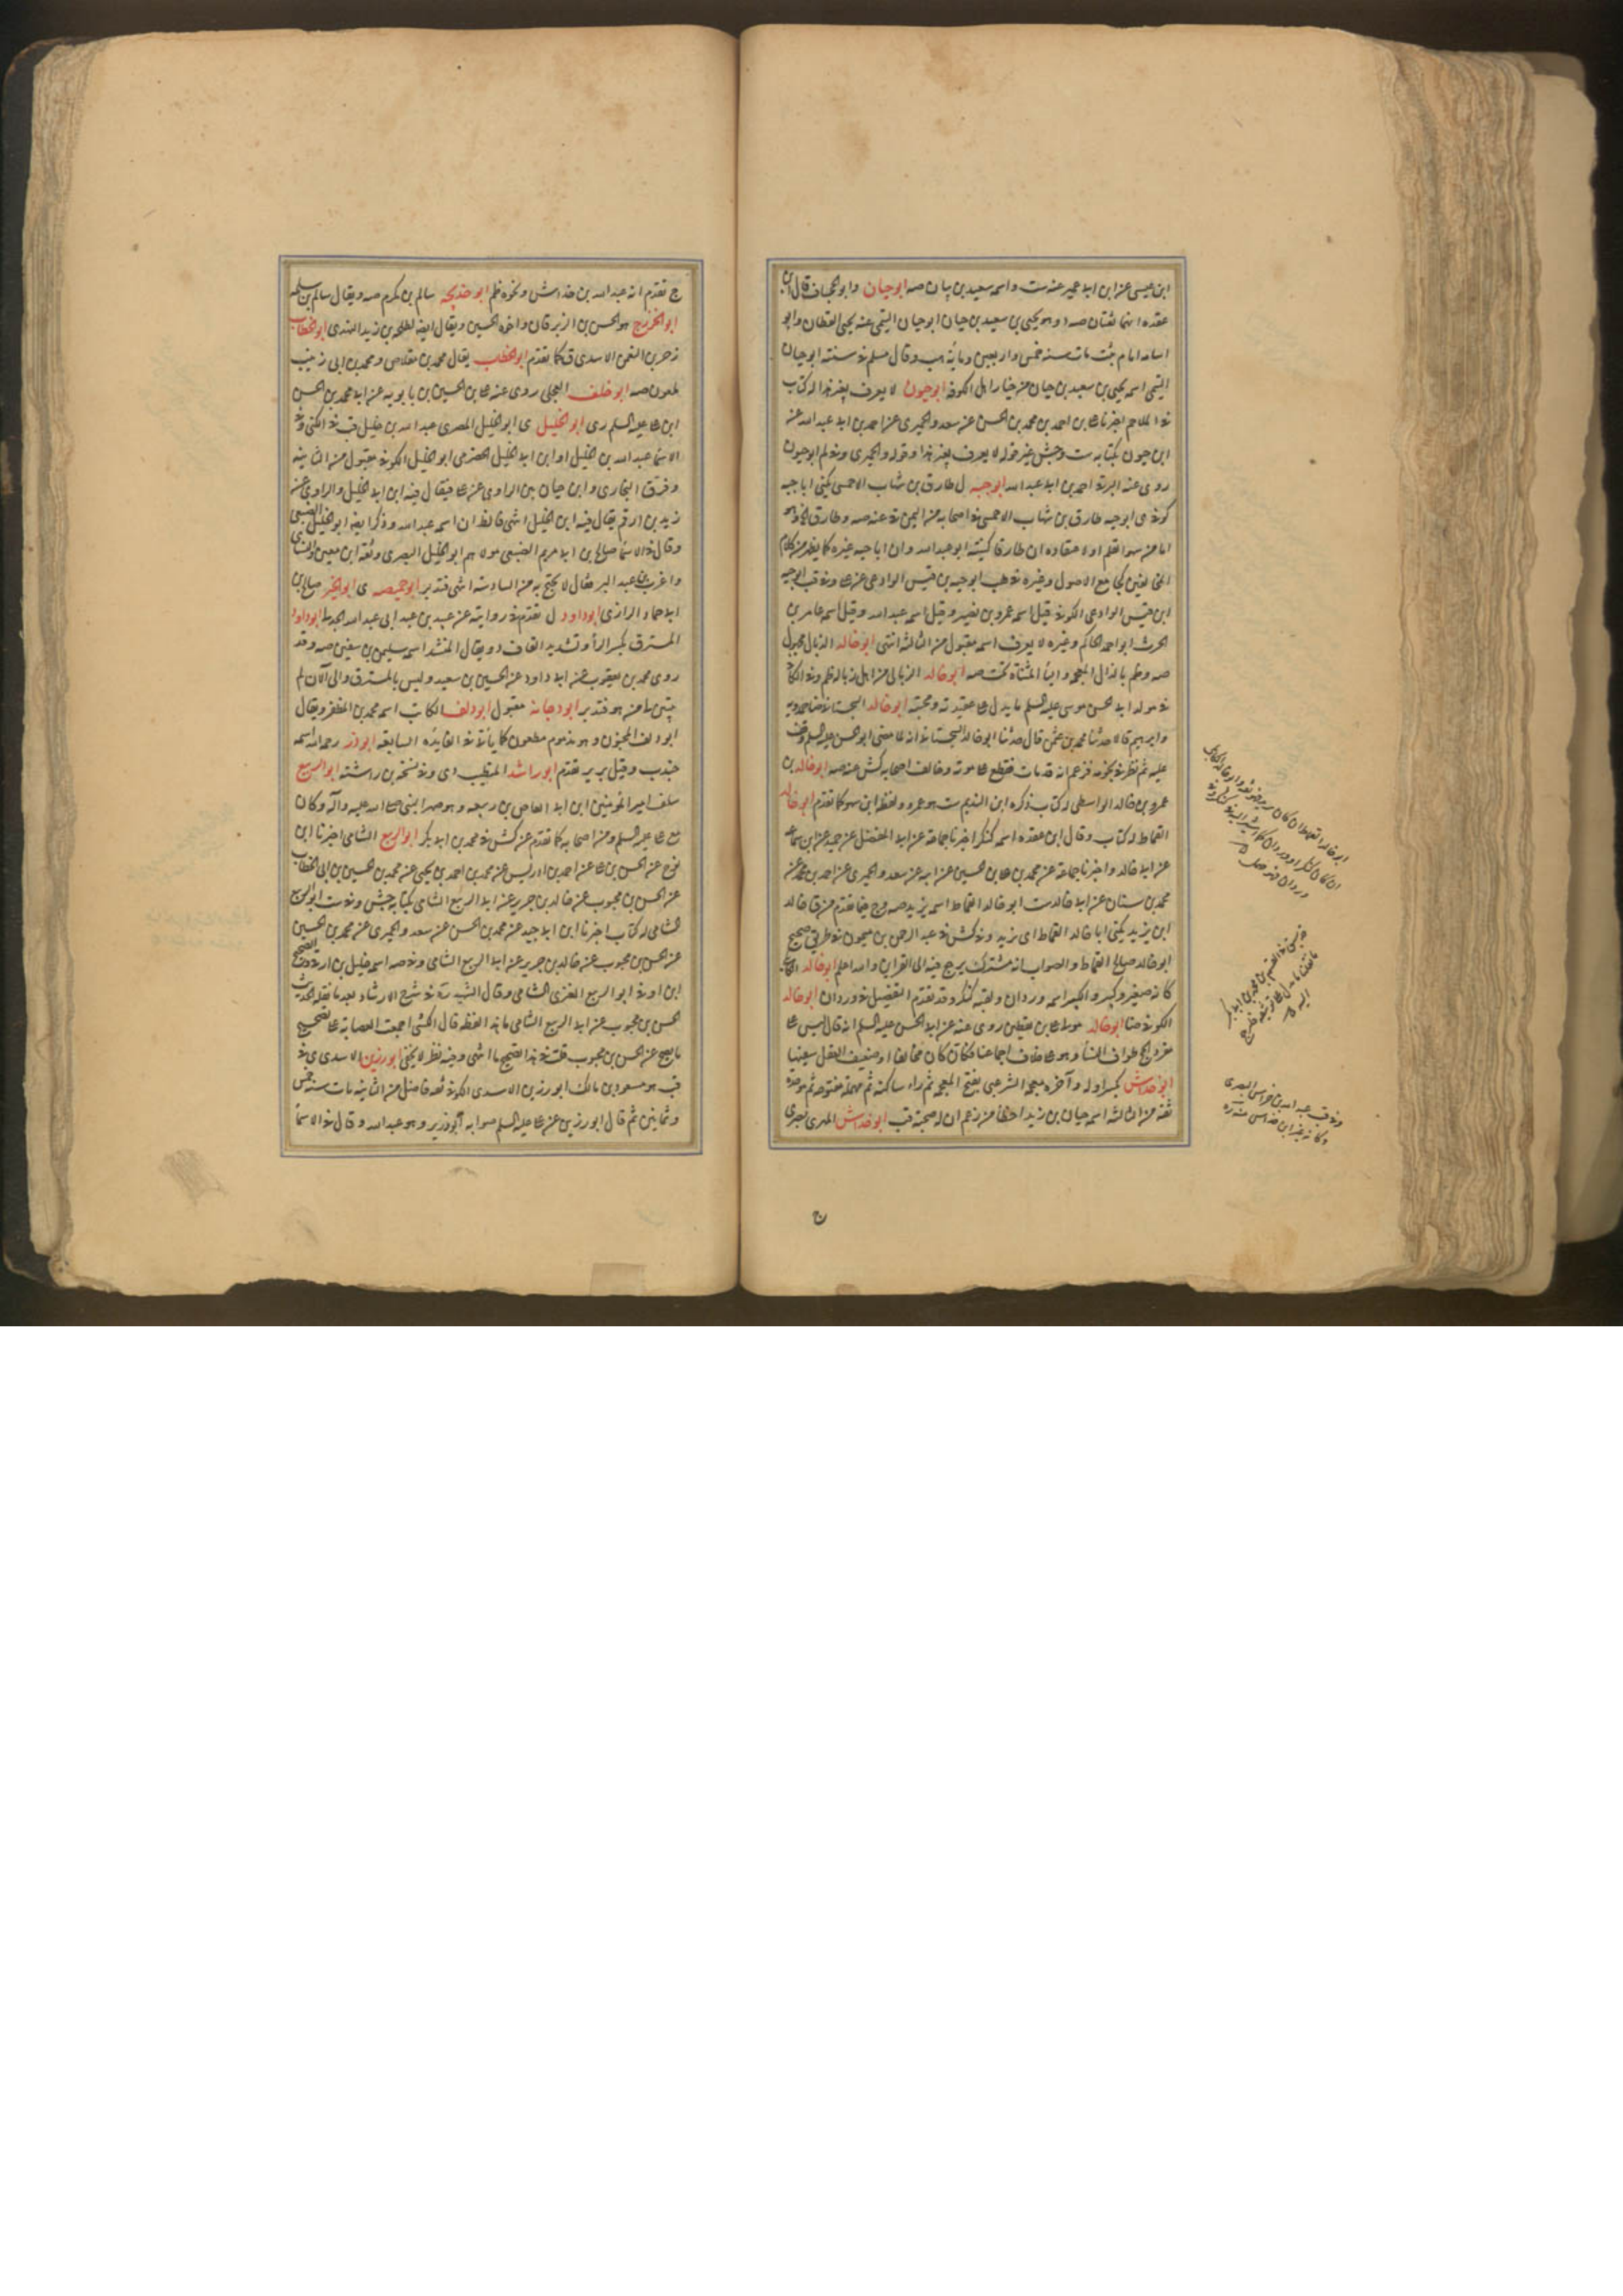 ابن عيسى عن ابن ابى عمير عنه ست واسمه سعيد بن بيان صه ابو حيان وابو الجحاف قال ابن
عقده انهما ثقتان صه د وهو يحيى بن سعيد بن حيان ابو حيان التيمى عنه يحيى القطان وابو
اسامه امام ثبت مات سنه خمس واربعين ومائه هب وقال مسلم فى سنته ابو حيان
التيمى اسمه يحيى بن سعيد بن حيان من خيار اهل الكوفه ابو حيون لا يعرف بغير هذا له كتاب
فى الملاحم اخبرنا على بن احمد بن محمد بن الحسن عن سعد والحميرى عن احمد بن ابى عبد الله عن
ابن حيون بكتابه ست وجش غير قوله لا يعرف بغير هذا وقوله والحميرى وفى لم ابو حيون
روى عنه البرقى احمد بن ابى عبد الله ابو حيه ل طارق بن شهاب الاحمسى يكنى ابا حيه
كوفى ى ابو حيه طارق بن شهاب الاحمسى فى اصحابه من اليمن قى عنه صه وطارق
اما من سهو القلم او لاعتقاده ان طارقا كنيته ابو عبد الله وان ابا حيه غيره كما يظهر من كلام
جامع الاصول وغيره هب ابو حيه بن قيس الوادعى عن على وفى قب ابو حيه
ابن قيس الوادعى الكوفى قيل اسمه عمرو بن نصر وقيل اسمه عبد الله وقيل اسمه عامر بن
الحرث ابو احمد الحاكم وغيره لا يعرف اسمه مقبول من الثالثه انتهى ابو خالد الذيال مجهول
صه وظم بالذال المعجمه والياء المثناه تحت صه ابو خالد الزبالى من اهل زباله ظم وفى الكافى
فى مولد ابى الحسن موسى عليه السلم ما يدل على عقيدته ومحبته ابو خالد السجستانى ضا حمدويه
وابرهيم قالا حدثنا محمد بن عثمن قال حدثنا ابو خالد السجستانى انه لما مضى ابو الحسن عليه السلم وقف
عليه ثم نظر فى نجومه فزعم انه قد مات فقطع على موته وخالف اصحابه كش عنه صه ابو خالد بن
عمرو بن خالد الواسطى له كتاب ذكره ابن النديم ست هو عمرو ولفظ ابن سهو كما تقدم ابو خالد
القماط له كتاب وقال ابن عقده اسمه كنكر اخبرنا جماعه عن ابى المفضل عن حميد عن ابن سماعه
عن ابى خالد واخبرنا جماعة عن محمد بن على بن الحسين عن ابيه عن سعد والحميرى عن احمد بن محمد عن
محمد بن سنان عن ابى خالد ست ابو خالد القماط اسمه يزيد صه وج فيما تقدم من ق خالد
ابن يزيد يكنى ابا خالد القماط اى يزيد وفى كش فى عبد الرحمن بن ميمون فى طريق صحيح
ابو خالد صالح القماط والصواب انه مشترك يرجع فيه الى القراين والله اعلم ابو خالد الكابلى
كانه صغير وكبير والكبير اسمه وردان ولقبه كنكر وقد تقدم التفصيل فى وردان ابو خالد
الكوفى ضا ابو خالد مولى على بن يقطين روى عنه عن ابى الحسن عليه السلم انه قال ليس على
مفرد الحج طواف النساء وهو على خلاف اجماعنا فكان كان مخالفا او ضعيف العقل سفيها
ابو خداش بكسر اوله وآخره معجمه الشرعبى بفتح المعجمه ثم راء ساكنه ثم مهمله مفتوحه ثم موحده
ثقه من الثالثه اسمه حبان بن زيد اخطأ من زعم ان له صحبه قب ابو خداش المهرى بصرى
ج تقدم انه عبد الله بن خداش ونحوه ظم ابو خديجه سالم بن مكرم صه ويقال سالم بن سلمه
ابو الخزرج هو الحسن بن الزبرقان واخوه الحسين ويقال ايضا لطلحه بن زيد النهدى ابو الخطاب
زحر بن النعمن الاسدى ق كما تقدم ابو الخطاب يقال لمحمد بن مقلاص ومحمد بن ابى زينب
ملعون صه ابو خلف العجلى روى عنه على بن الحسين بن بابويه عن ابى محمد الحسن
ابن على عليه السلم رى ابو الخليل ى ابو الخليل المصرى عبد الله بن خليل قب فى الكنى وفى
الاسما عبد الله بن الخليل او ابن ابى الخليل الحضرمى ابو الخليل الكوفى مقبول من الثانيه
وفرق البخارى وابن حبان بين الراوى عن على فيقال فيه ابن ابى الخليل والراوى عن
زيد بن ارقم يقال فيه ابن الخليل انتهى فالظ ان اسمه عبد الله وذكر ايضا ابو الخليل الضبعى
وقال فى الاسما صالح بن ابى مريم الضبعى مولاهم ابو الخليل البصرى وثقه ابن معين والنسائى
واغرب ابن عبد البر فقال لا يحتج به من السادسه انتهى فتدبر ابو خميصه ى ابو الخير صالح بن
ابى حماد الرازى ابو داود ل تقدم فى روايته عن عبيد بن عبد ابى عبد الله الجدلى ابو داود
المسترق بكسر الراء وتشديد القاف د ويقال المنشد اسمه سليمن بن سفين صه وقد
روى محمد بن يعقوب عن ابى داود عن الحسين بن سعيد وليس بالمسترق والى الآن لم
يتبين لنا من هو فتدبر ابو دجانه مقبول ابو دلف الكاتب اسمه محمد بن المظفر ويقال
ابو دلف المجنون وهو مذموم مطعون كما يأتى فى الفايده السابقه ابو ذر رحمه الله اسمه
جندب وقيل برير تقدم ابو راشد المتطبب دى وفى نسخه بن راشته ابو الربيع
سلف امير المؤمنين ابن ابى العاص بن ربيعه وهو صهر النبى صلى الله عليه وآله وكان
مع على عليه السلم ومن اصحابه كما تقدم عن كش فى محمد بن ابى بكر ابو الربيع الشامى اخبرنا ابن
نوح عن الحسن بن على عن احمد بن ادريس عن محمد بن احمد بن يحيى عن محمد بن الحسين بن ابى الخطاب
عن الحسن بن محبوب عن خالد بن جرير عن ابى الربيع الشامى بكتابه جش وفى ست ابو الربيع
الشامى له كتاب اخبرنا ابن ابى جيد عن محمد بن الحسن عن سعد والحميرى عن محمد بن الحسين
عن الحسن بن محبوب عن خالد بن جرير عن ابى الربيع الشامى وفى صه اسمه خليل بن اوفى وفى الصحيح
ابن اوفى ابو الربيع العنزى الشامى وقال الشهيد ره فى شرح الارشاد بعد ما نقله الحديث
الحسن بن محبوب عن ابى الربيع الشامى ما هذا لفظه قال الكشى اجمعت العصابه على تصحيح
ما يصح عن الحسن بن محبوب قلت فى هذا تصحيح ما انتهى وفيه نظر لا يخفى ابو رزين الاسدى ى فى
قب هو مسعود بن مالك ابو رزين الاسدى الكوفى ثقه فاضل من الثانيه مات سنه خمس
وثمانين ثم قال ابو رزين عن على عليه السلم صوابه ابو زرير وهو عبد الله وقال فى الاسما